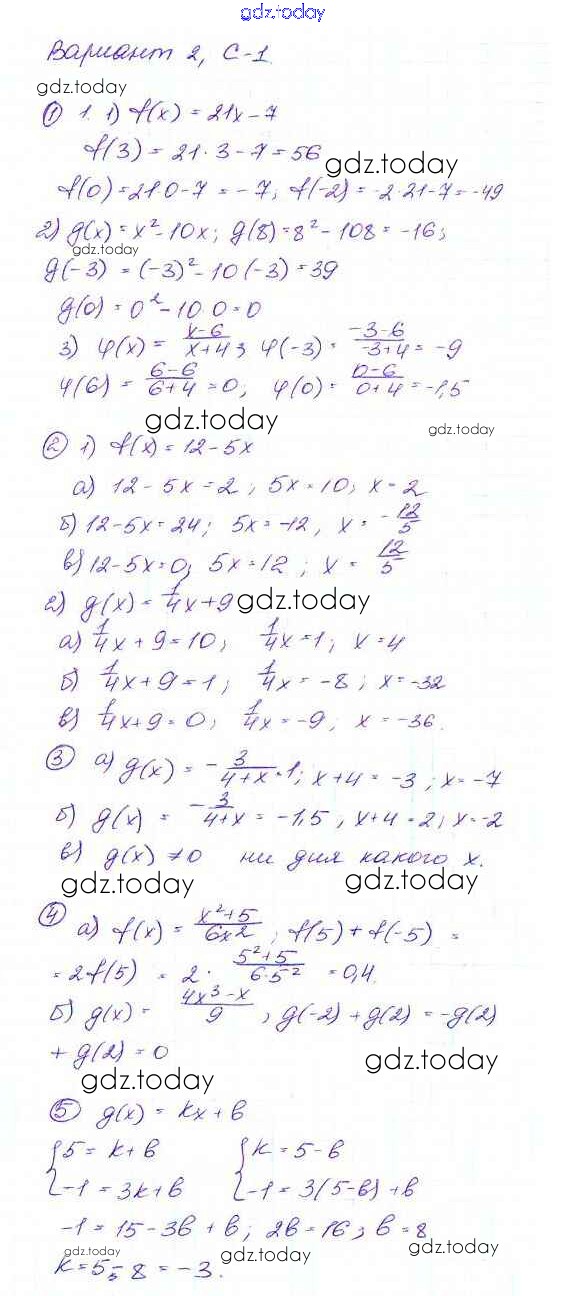 gdz.today
Вариант 2, С-1
gdz.today
① 1. 1) f(x) = 21x - 7
f(3) = 21·3 - 7 = 56
gdz.today
f(0) = 21·0 - 7 = -7; f(-2) = -2·21 - 7 = -49
2) g(x) = x² - 10x; g(8) = 8² - 108 = -16;
gdz.today
g(-3) = (-3)² - 10(-3) = 39
g(0) = 0² - 10·0 = 0
3) φ(x) = (x-6)/(x+4); φ(-3) = (-3-6)/(-3+4) = -9
φ(6) = (6-6)/(6+4) = 0; φ(0) = (0-6)/(0+4) = -1,5
gdz.today gdz.today
② 1) f(x) = 12 - 5x
а) 12 - 5x = 2; 5x = 10; x = 2
б) 12 - 5x = 24; 5x = -12, x = -12/5
в) 12 - 5x = 0; 5x = 12; x = 12/5
2) g(x) = 1/4x + 9 gdz.today
а) 1/4x + 9 = 10; 1/4x = 1; x = 4
б) 1/4x + 9 = 1; 1/4x = -8; x = -32
в) 1/4x + 9 = 0; 1/4x = -9; x = -36.
③ а) g(x) = -3/(4+x) = 1; x + 4 = -3; x = -7
б) g(x) = -3/(4+x) = -1,5, x + 4 = 2; x = -2
в) g(x) ≠ 0 ни для какого x.
gdz.today gdz.today
④ а) f(x) = (x²+5)/(6x²); f(5) + f(-5) =
= 2f(5) = 2 · (5²+5)/(6·5²) = 0,4.
б) g(x) = (4x³-x)/9, g(-2) + g(2) = -g(2)
+ g(2) = 0
gdz.today gdz.today
⑤ g(x) = kx + b
{5 = k + b {k = 5 - b
{-1 = 3k + b {-1 = 3(5-b) + b
-1 = 15 - 3b + b; 2b = 16; b = 8
gdz.today gdz.today gdz.today
k = 5 - 8 = -3.